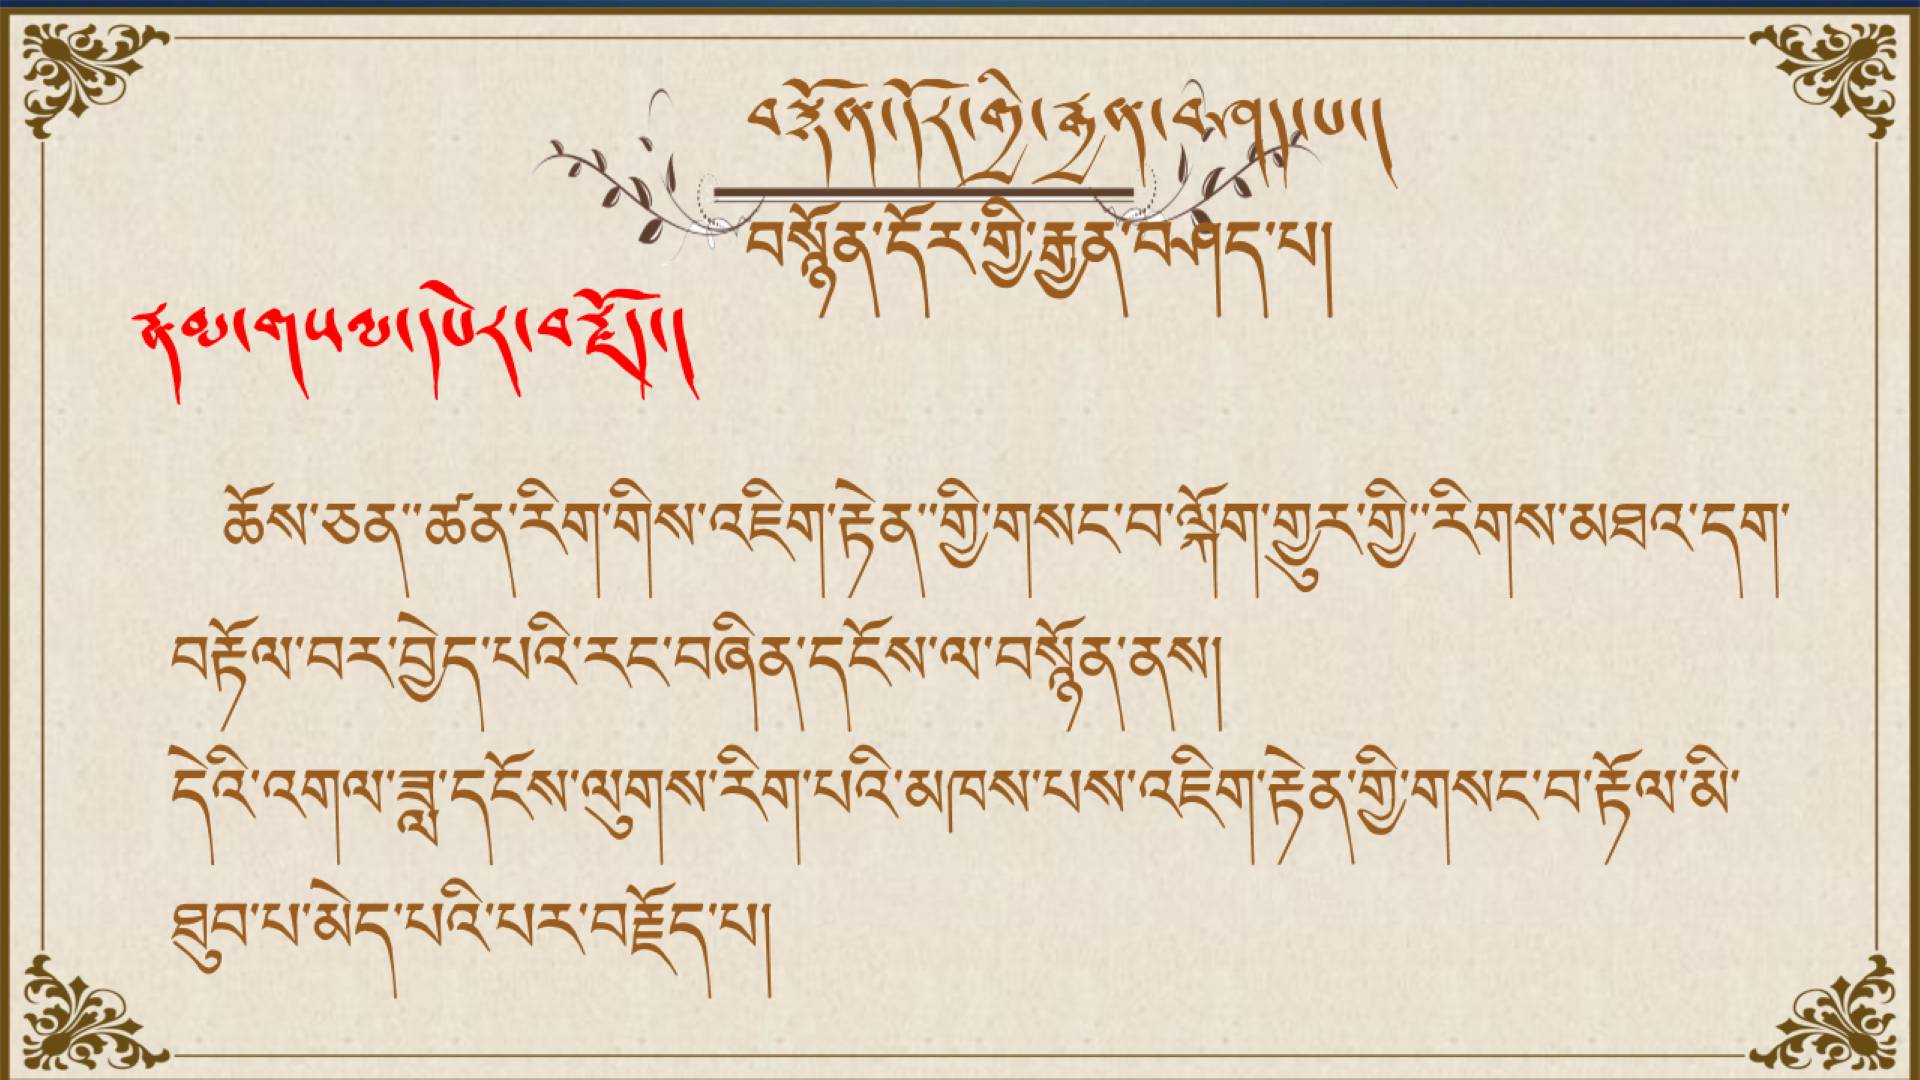 བསྙོན་དོར་གྱི་རྒྱན་བཤད་པ།
བསྙོན་དོར་གྱི་རྒྱན་བཤད་པ།
ཆོས་ཅན་་ཚན་རིག་གིས་འཇིག་རྟེན་་གྱི་གསང་བ་ལྐོག་གྱུར་གྱི་་རིགས་མཐའ་དག་
བརྟོལ་བར་བྱེད་པའི་རང་བཞིན་དངོས་ལ་བསྙོན་ནས།
དེའི་འགལ་ཟླ་དངོས་ལུགས་རིག་པའི་མཁས་པས་འཇིག་རྟེན་གྱི་གསང་བ་རྟོལ་མི་
ཐུབ་པ་མེད་པའི་པར་བརྗོད་པ།